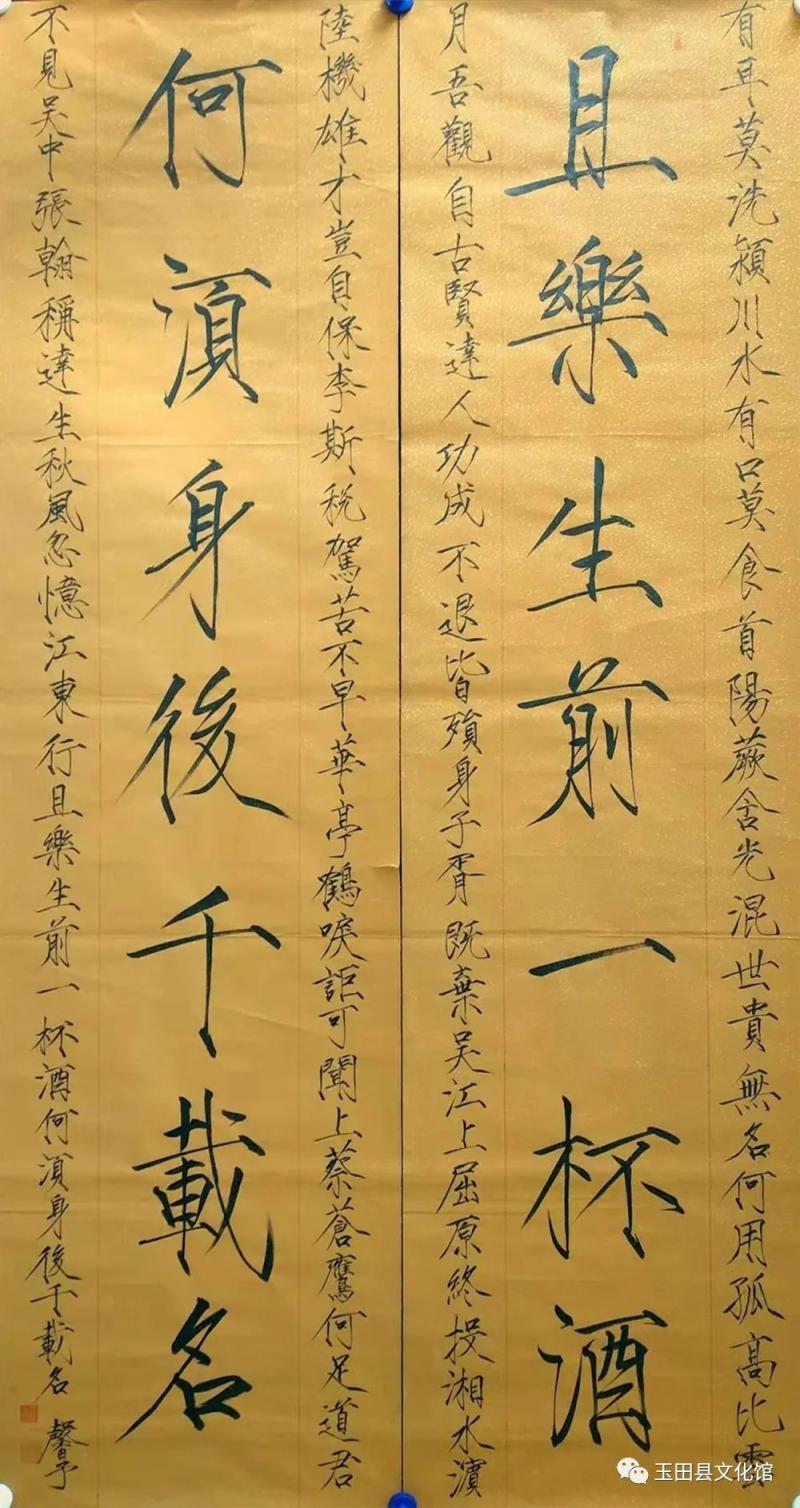 有耳莫洗潁川水有口莫食首陽蕨含光混世貴無名何用孤高比雲
且樂生前一杯酒
月吾觀自古賢達人功成不退皆殞身子胥既棄吳江上屈原終投湘水濱
陸機雄才豈自保李斯稅駕苦不早華亭鶴唳詎可聞上蔡蒼鷹何足道君
何須身後千載名
不見吳中張翰稱達生秋風忽憶江東行且樂生前一杯酒何須身後千載名 馨予
玉田县文化馆